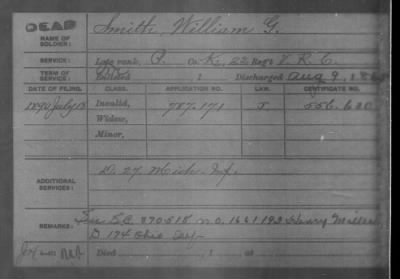 DEAD
NAME OF SOLDIER: Smith, William G.
SERVICE: Late rank, P. Co. K, 22 Reg't V. R. C.
TERM OF SERVICE: Enlisted , 1 Discharged Aug 9, 186
DATE OF FILING. CLASS. APPLICATION NO. LAW. CERTIFICATE NO.
1890 July 15 Invalid, 787.171 J 556.630
Widow,
Minor,
ADDITIONAL SERVICES: D. 27 Mich. Inf.
REMARKS: See S.C. 870515 no. 1661192 Henry Miller
D 174 Ohio Inf
Died , 1 , at